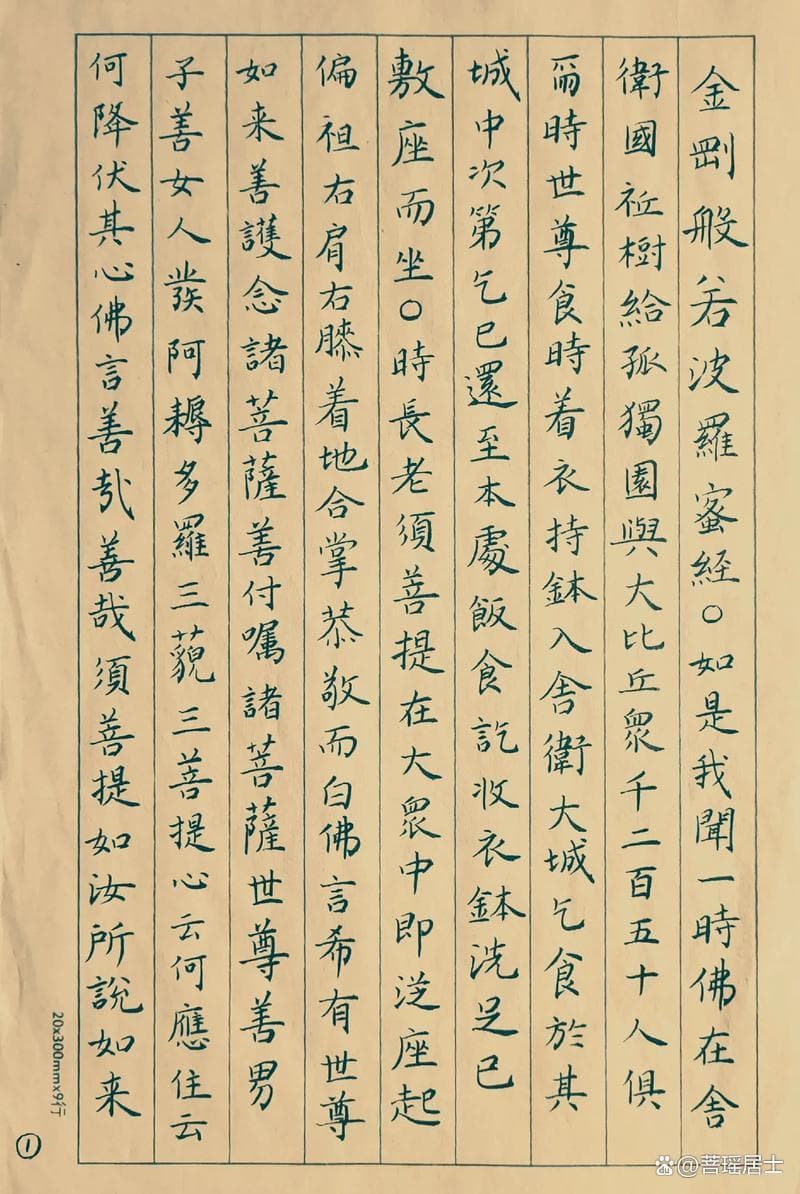 金剛般若波羅蜜經〇如是我聞一時佛在舍
衛國祇樹給孤獨園與大比丘眾千二百五十人俱
爾時世尊食時着衣持鉢入舍衛大城乞食於其
城中次第乞已還至本處飯食訖收衣鉢洗足已
敷座而坐〇時長老須菩提在大眾中即從座起
偏袒右肩右膝着地合掌恭敬而白佛言希有世尊
如来善護念諸菩薩善付嘱諸菩薩世尊善男
子善女人發阿耨多羅三藐三菩提心云何應住云
何降伏其心佛言善哉善哉須菩提如汝所說如来
20x300mmx9行
①
Bai百度 @菩瑶居士